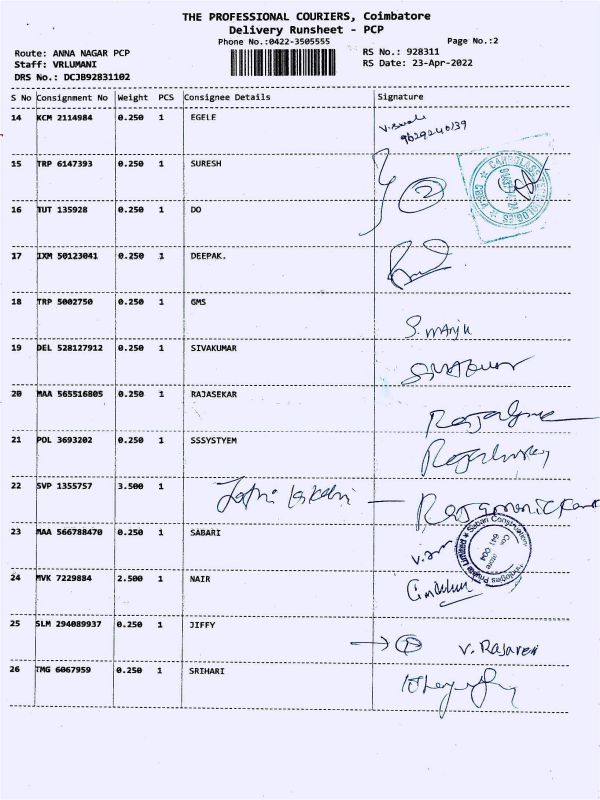 THE PROFESSIONAL COURIERS, Coimbatore
Delivery Runsheet - PCP
Phone No.:0422-3505555
Page No.:2
Route: ANNA NAGAR PCP
RS No.: 928311
Staff: VRLUMANI
RS Date: 23-Apr-2022
DRS No.: DCJB92831102
S No Consignment No Weight PCS Consignee Details Signature
14 KCM 2114984 0.250 1 EGELE
9629240139
15 TRP 6147393 0.250 1 SURESH
2
16 TUT 135928 0.250 1 DO
17 IXM 50123041 0.250 1 DEEPAK.
18 TRP 5002750 0.250 1 GMS
S. Manju
19 DEL 528127912 0.250 1 SIVAKUMAR
20 MAA 565516805 0.250 1 RAJASEKAR
21 POL 3693202 0.250 1 SSSYSTYEM
22 SVP 1355757 3.500 1
Rajamanickam
23 MAA 566788470 0.250 1 SABARI
24 MVK 7229884 2.500 1 NAIR
25 SLM 294089937 0.250 1 JIFFY
V. Rajaveri
26 TMG 6067959 0.250 1 SRIHARI